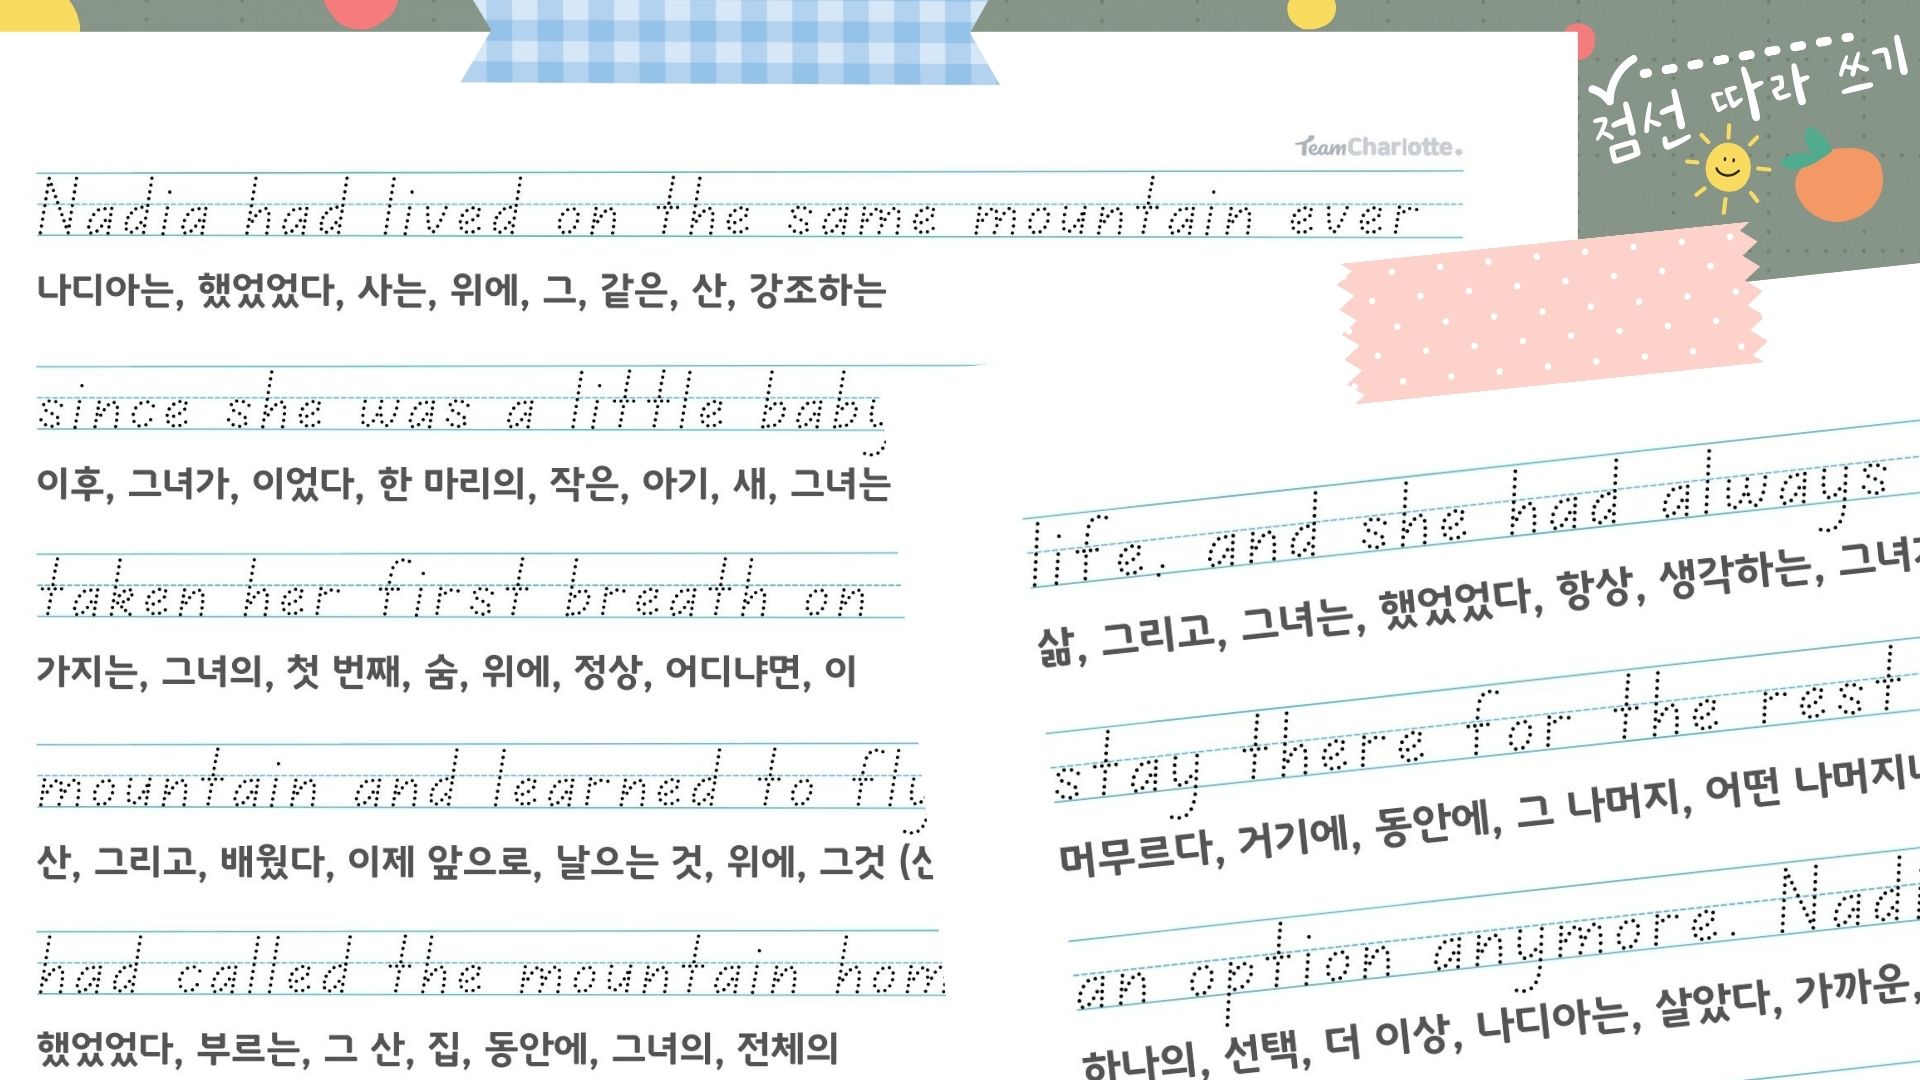 점선 따라 쓰기
TeamCharlotte.
Nadia had lived on the same mountain ever
나디아는, 했었었다, 사는, 위에, 그, 같은, 산, 강조하는
since she was a little baby
이후, 그녀가, 이었다, 한 마리의, 작은, 아기, 새, 그녀는
taken her first breath on
가지는, 그녀의, 첫 번째, 숨, 위에, 정상, 어디냐면, 이
mountain and learned to fly
산, 그리고, 배웠다, 이제 앞으로, 날으는 것, 위에, 그것
had called the mountain
했었었다, 부르는, 그 산, 집, 동안에, 그녀의, 전체의
life, and she had always
삶, 그리고, 그녀는, 했었었다, 항상, 생각하는,
stay there for the rest
머무르다, 거기에, 동안에, 그 나머지, 어떤
an option anymore.
하나의, 선택, 더 이상, 나디아는, 살았다, 가까운,